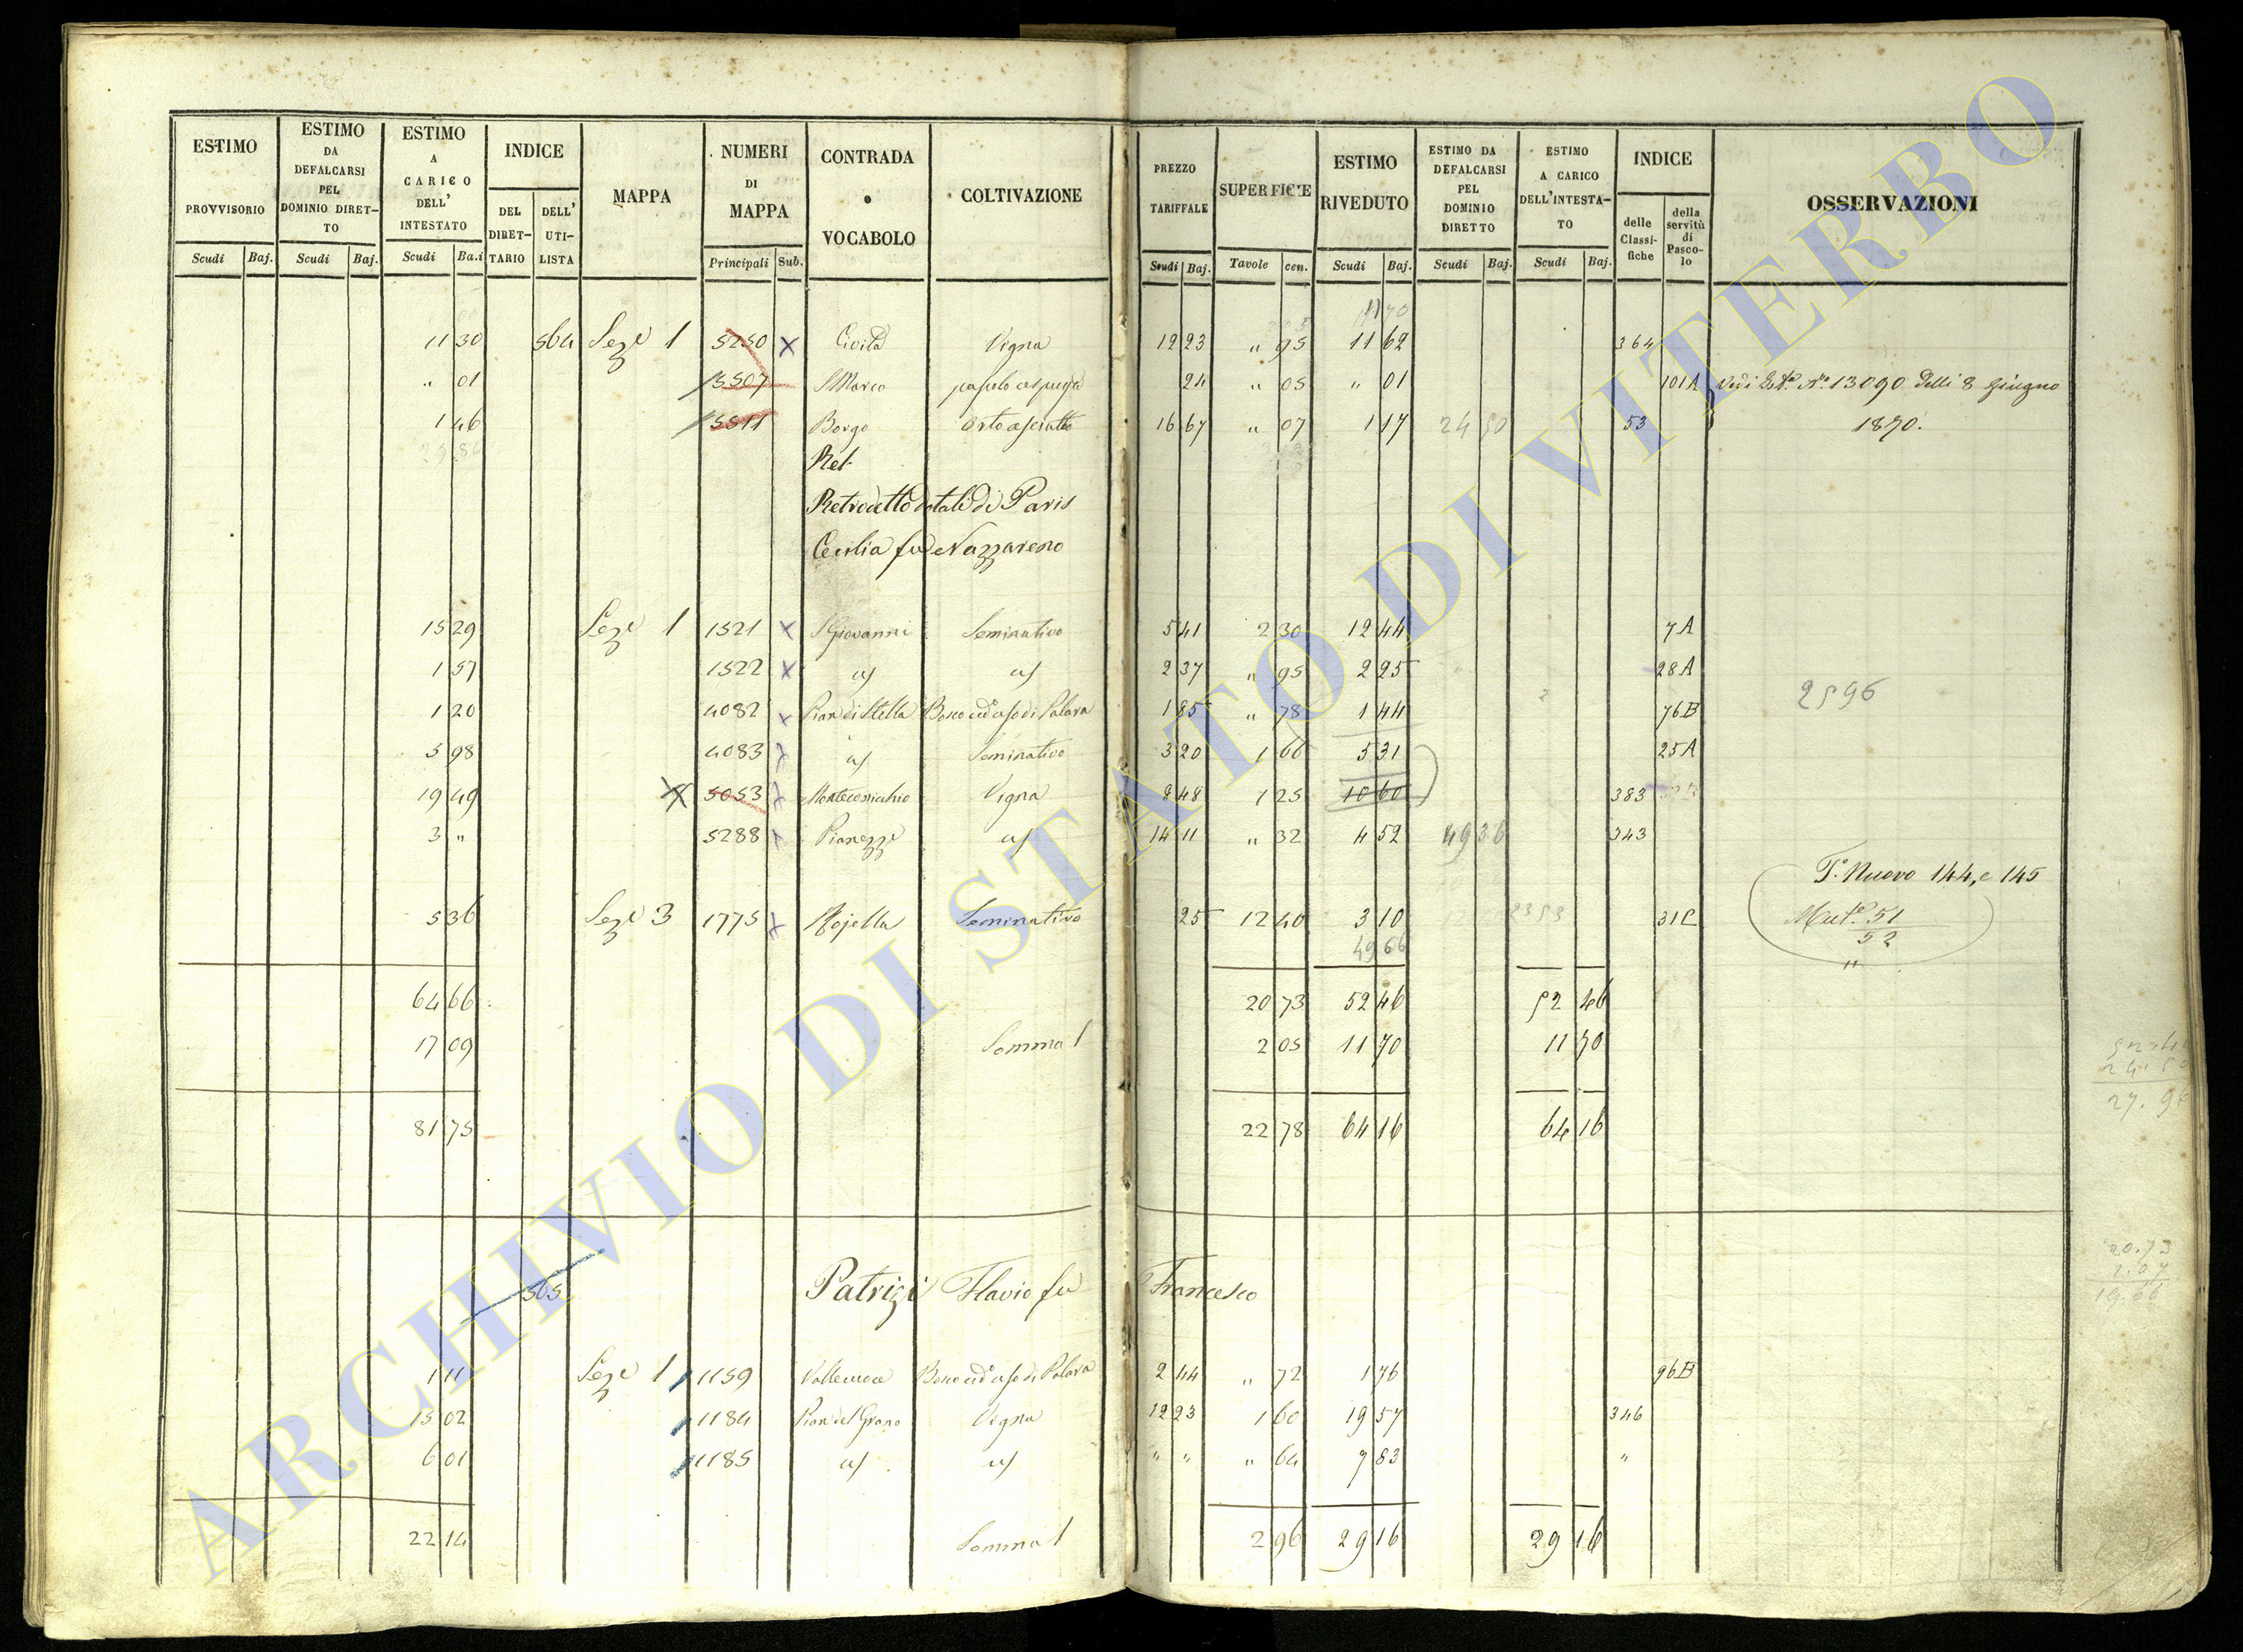 ESTIMO PROVVISORIO Scudi Baj.
ESTIMO DA DEFALCARSI PEL DOMINIO DIRET-TO Scudi Baj.
ESTIMO A CARICO DELL' INTESTATO Scudi Ba.i
INDICE DEL DIRET-TARIO DELL' UTI-LISTA
MAPPA
NUMERI DI MAPPA Principali Sub.
CONTRADA o VOCABOLO
COLTIVAZIONE
PREZZO TARIFFALE Scudi Baj.
SUPERFICIE Tavole cen.
ESTIMO RIVEDUTO Scudi Baj.
ESTIMO DA DEFALCARSI PEL DOMINIO DIRETTO Scudi Baj.
ESTIMO A CARICO DELL'INTESTA-TO Scudi Baj.
INDICE delle Classi-fiche della servitù di Pasco-lo
OSSERVAZIONI
11 70
11 30 564 Seze 1 5250 x Civita Vigna 12 23 " 95 11 62 364
" 01 5507 S Marco 24 " 05 " 01 101A Vedi N° 13090 Delli 8 Giugno
1 46 5511 Borgo Orto asciutto 16 67 " 07 1 17 24 50 53 1870.
Ret
Retrodetto dotali di Paris
Cecilia fu Nazzareno
15 29 Seze 1 1521 x S Giovanni Seminativo 5 41 2 30 12 44 7A
1 57 1522 x 2 37 " 95 2 25 28A
1 20 4082 x Pian di Stella Bosco ced° uso di Palara 1 85 " 78 1 44 76B 2596
5 98 4083 x Seminativo 3 20 1 66 5 31 25A
19 49 x 5053 x Vigna 8 48 1 25 10 60 383
3 " 5288 x Pianezze 14 11 " 32 4 52 49 36 343
T° Nuovo 144, e 145
5 36 Seze 3 1775 x Mojella Seminativo 25 12 40 3 10 31C Mut° 51
52
49 66
64 66 20 73 52 46 52 46
17 09 Somma 1 2 05 11 70 11 70
81 75 22 78 64 16 64 16
505 Patrizi Flavio fu Francesco
1 11 Seze 1 1159 Bosco ced° uso di Palara 2 44 " 72 1 76 96B
15 02 1184 Pian del Grano Vigna 12 23 1 60 19 57 346
6 01 1185 " " " 64 7 83 "
22 14 Somma 1 2 96 29 16 29 16
20.73
19.66
ARCHIVIO DI STATO DI VITERBO